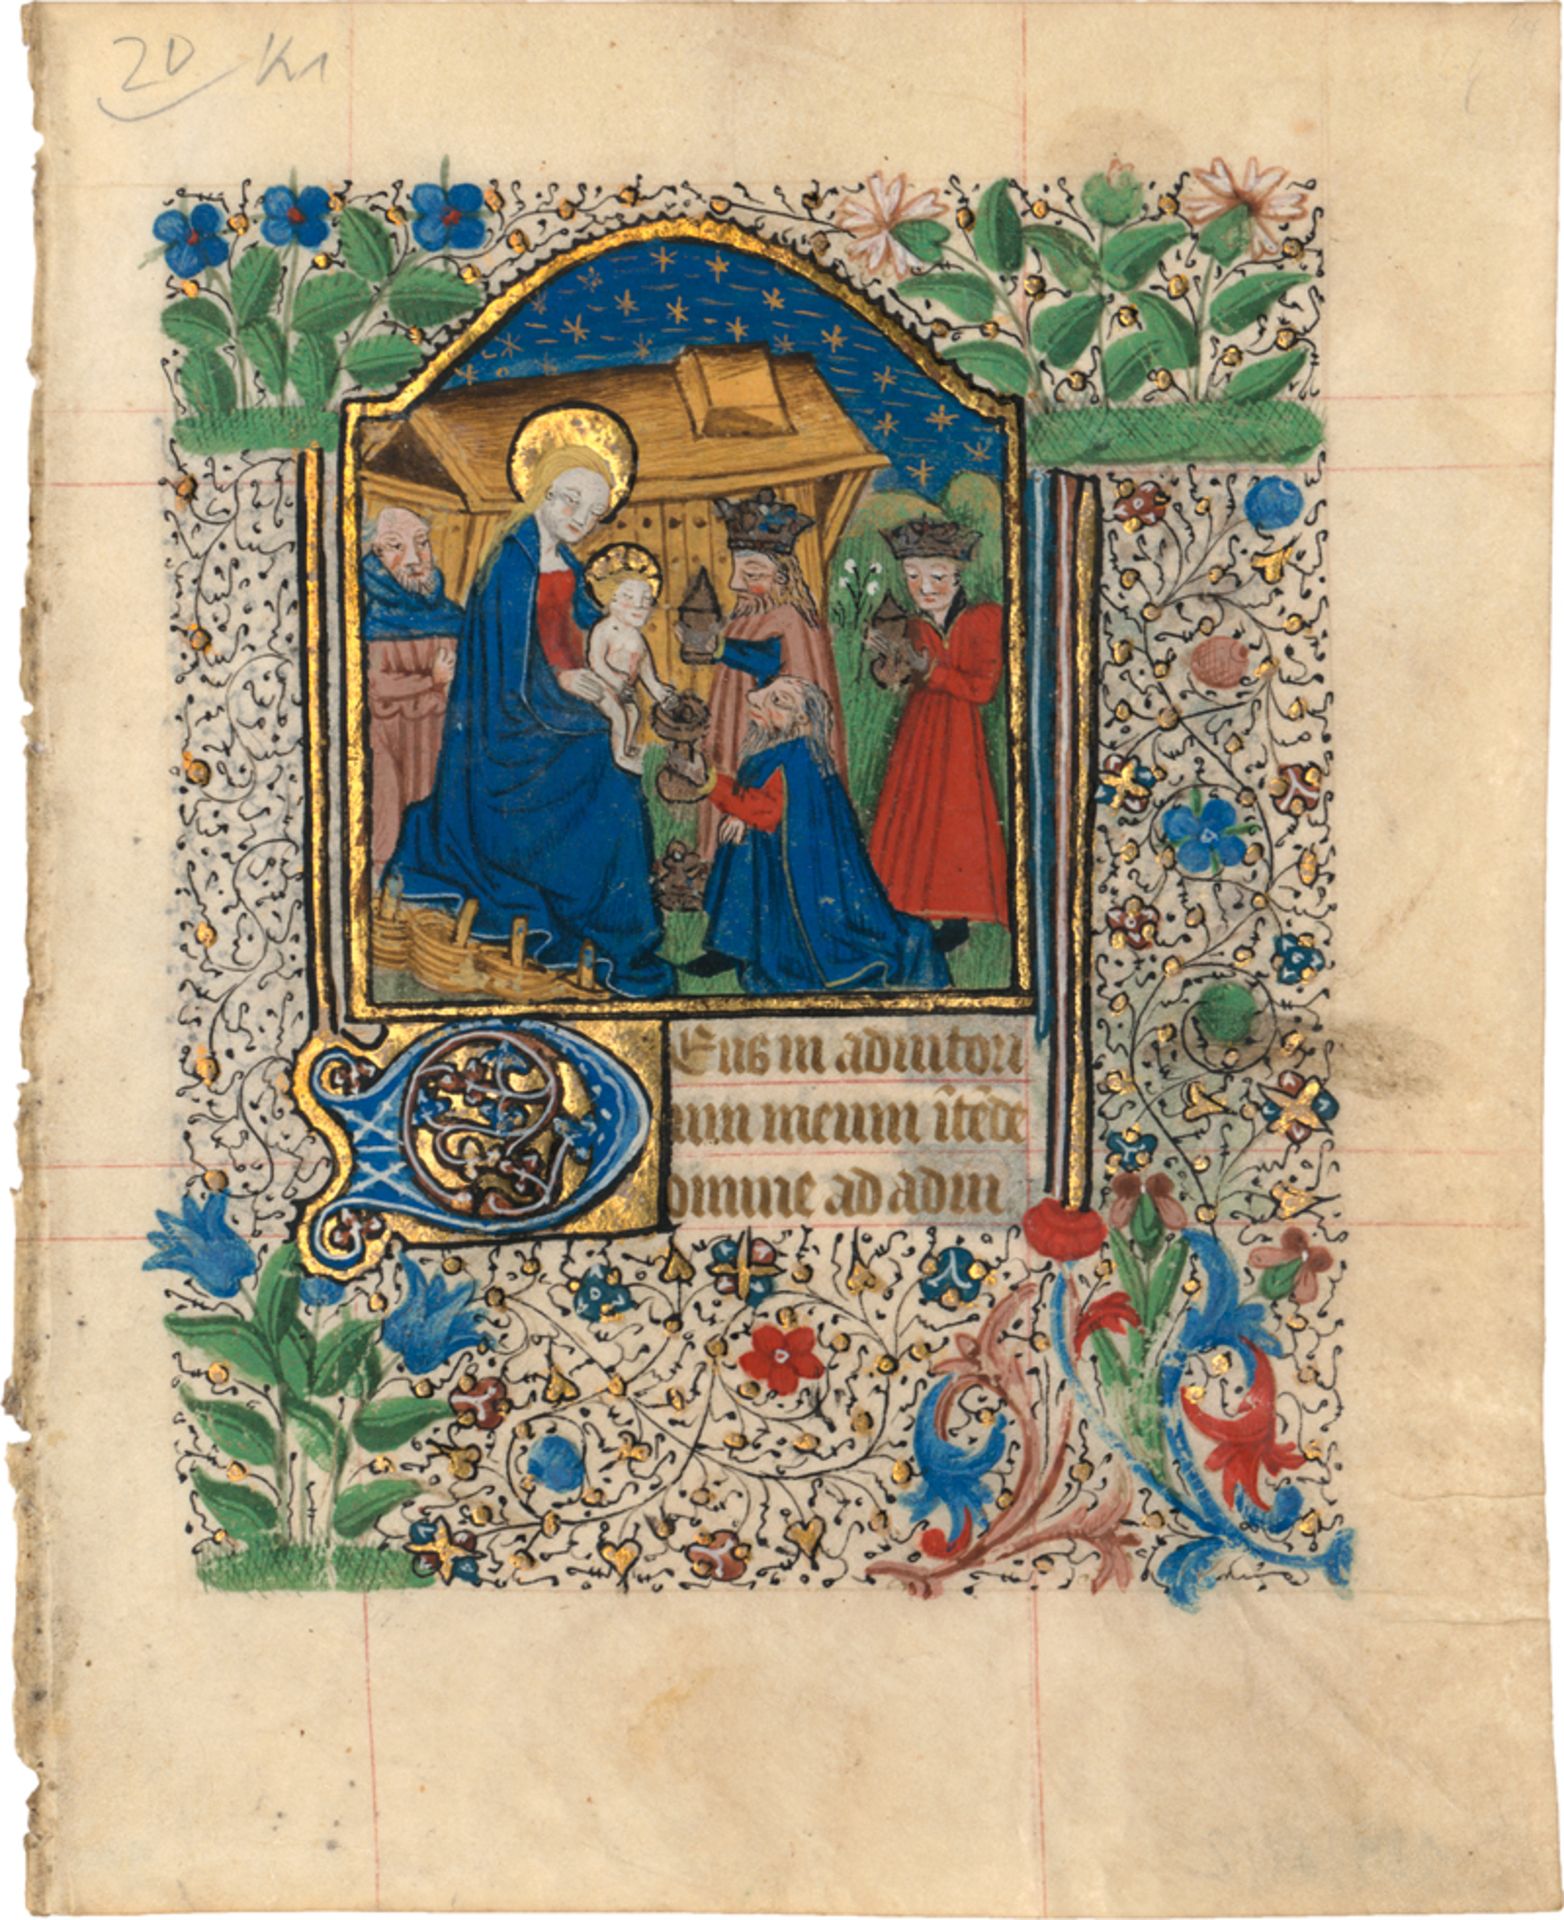 20 Kr
Deus in adiutori
um meum ītēde
domine ad adiu